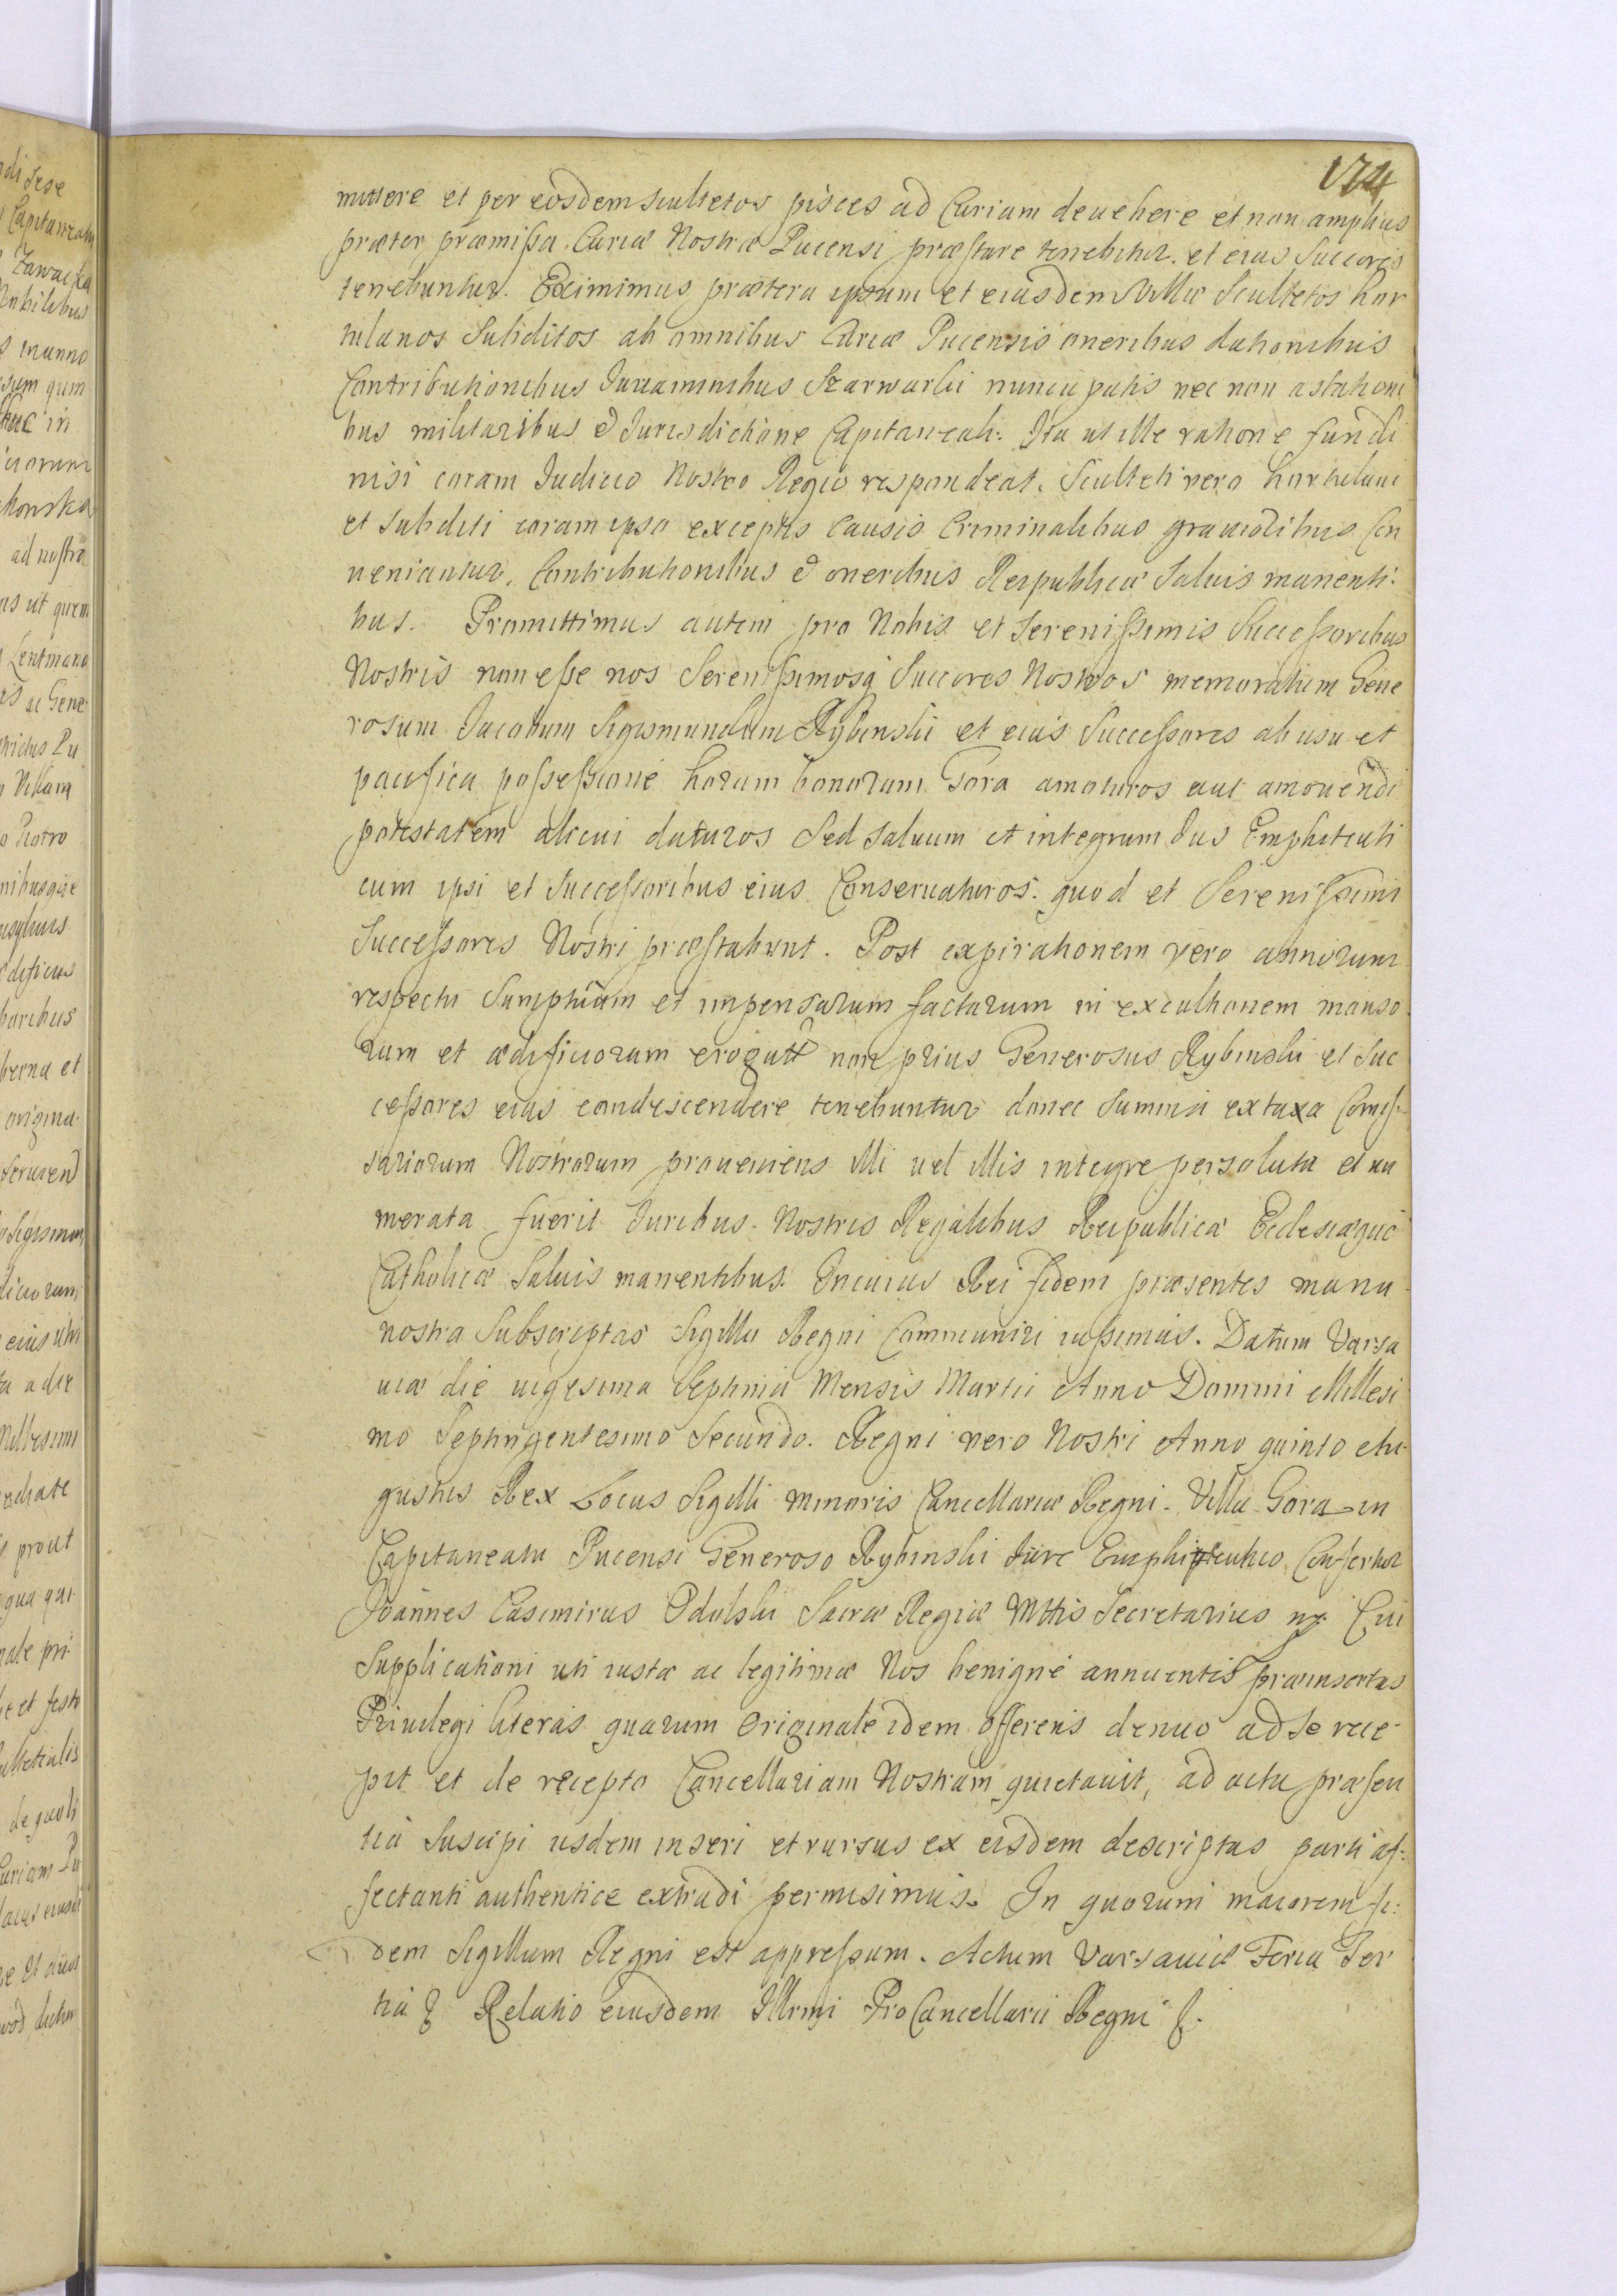 174
mittere et per eosdem scultetos pisces ad Curiam deuehere et non amplius
præter præmissa. Curiæ Nostræ Pucensi præstare tenebitur. et eius Succores
tenebuntur. Eximimus prætera ipsum et eiusdem Villæ Scultetos hor
tulanos Subditos ab omnibus Curiæ Pucensis oneribus dationibus
Contributionibus Juuaminibus Szarwarki nuncupatis nec non a stationi
bus militaribus & Jurisdictione Capitaneali: Ita ut ille ratione fundi
nisi coram Judicio Nostro Regio respondeat. Sculteti vero hortulani
et Subditi coram ipso exceptis Causis Criminalibus grauioribus Con
ueniantur, Contributionibus & oneribus Reipublicæ Saluis manenti:
bus. Promittimus autem pro Nobis et Serenissimis Successoribus
Nostris non esse nos Serenissimosq Succores Nostros memoratum Gene
rosum Jacobum Sigismundum Rybinski et eius Successores ab usu et
pacifica possessione horum bonorum Gora amoturos aut amouendi
potestatem alicui daturos Sed saluum et integrum Jus Emphiteuti
cum ipsi et Successoribus eius Conseruaturos. quod et Serenissimi
Successores Nostri præstabunt. Post expirationem vero annorum
respectu Sumptuum et impensarum factarum in excultionem manso
rum et ædificiorum erogatt non prius Generosus Rybinski et Suc
cessores eius condescendere tenebuntur donec Summa ex taxa Comis
sariorum Nostrorum proueniens illi uel illis integre persoluta et nu
merata fuerit Juribus Nostris Regalibus Reipublicæ Eclesiæque
Catholicæ Saluis manentibus. In cuius Rei fidem præsentes manu
nostra Subscriptas Sigillo Regni Communiri iussimus. Datum Varsa
uiæ die uigesima Septima Mensis Martii Anno Domini Millesi
mo Septingentesimo Secundo. Regni vero Nostri Anno quinto Au
gustus Rex Locus Sigilli minoris Cancellariæ Regni. Villa Gora in
Capitaneatu Pucensi Generoso Rybinski Jure Emphiteutico Confertur
Joannes Casimirus Odolski Sacræ Regiæ Mttis Secretarius Cui
Supplicationi uti iustæ ac legitimæ Nos benigne annuentes præinsertas
Priuilegi literas quarum Originale idem offerens denuo ad se rece
pit et de recepto Cancellariam Nostram quietauit, ad acta præsen
tia Suscipi iisdem inseri et rursus ex eisdem descriptas parti af:
fectanti authentice extradi permisimus. In quorum maiorem fi:
dem Sigillum Regni est appressum. Actum Varsauiæ Feria Ter
tia Relatio eiusdem Illrmi ProCancellarii Regni